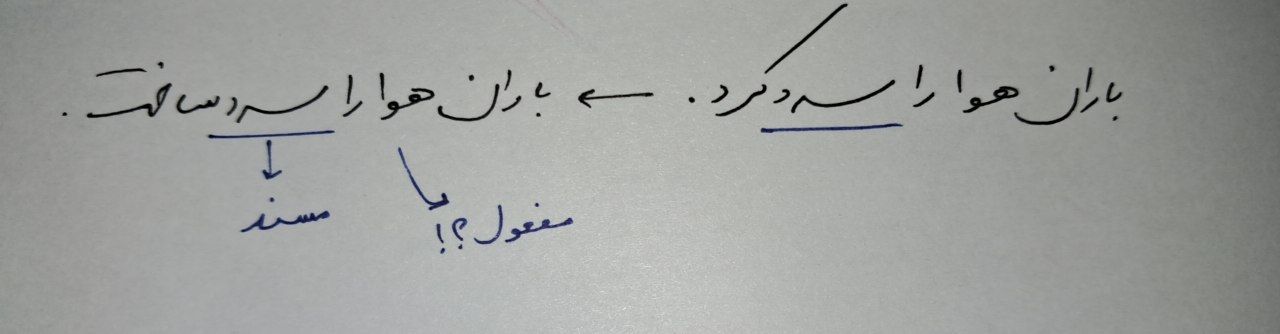 باران هوا را سرد کرد. ← باران هوا را سرد ساخت.
مفعول؟! مسند